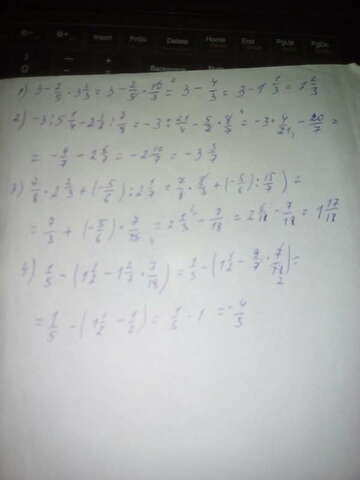 Insert PrtSc Delete Home PgUp PgDn
1) 3 - 2/5 · 3 1/3 = 3 - 2/5 · 10/3 = 3 - 4/3 = 3 - 1 1/3 = 1 2/3
2) -3 : 5 1/4 - 2 1/2 : 7/8 = -3 : 21/4 - 5/2 · 8/7 = -3 · 4/21 - 20/7 =
= -4/7 - 2 6/7 = -2 10/7 = -3 3/7
3) 7/8 · 2 2/3 + (-5/6) : 2 1/7 = 7/8 · 8/3 + (-5/6) : 15/7 =
= 7/3 + (-5/6) · 7/15 = 2 1/3 - 7/18 = 2 6/18 - 7/18 = 1 17/18
4) 1/5 - (1 1/2 - 1 2/7 · 7/18) = 1/5 - (1 1/2 - 9/7 · 7/18) =
= 1/5 - (1 1/2 - 1/2) = 1/5 - 1 = -4/5